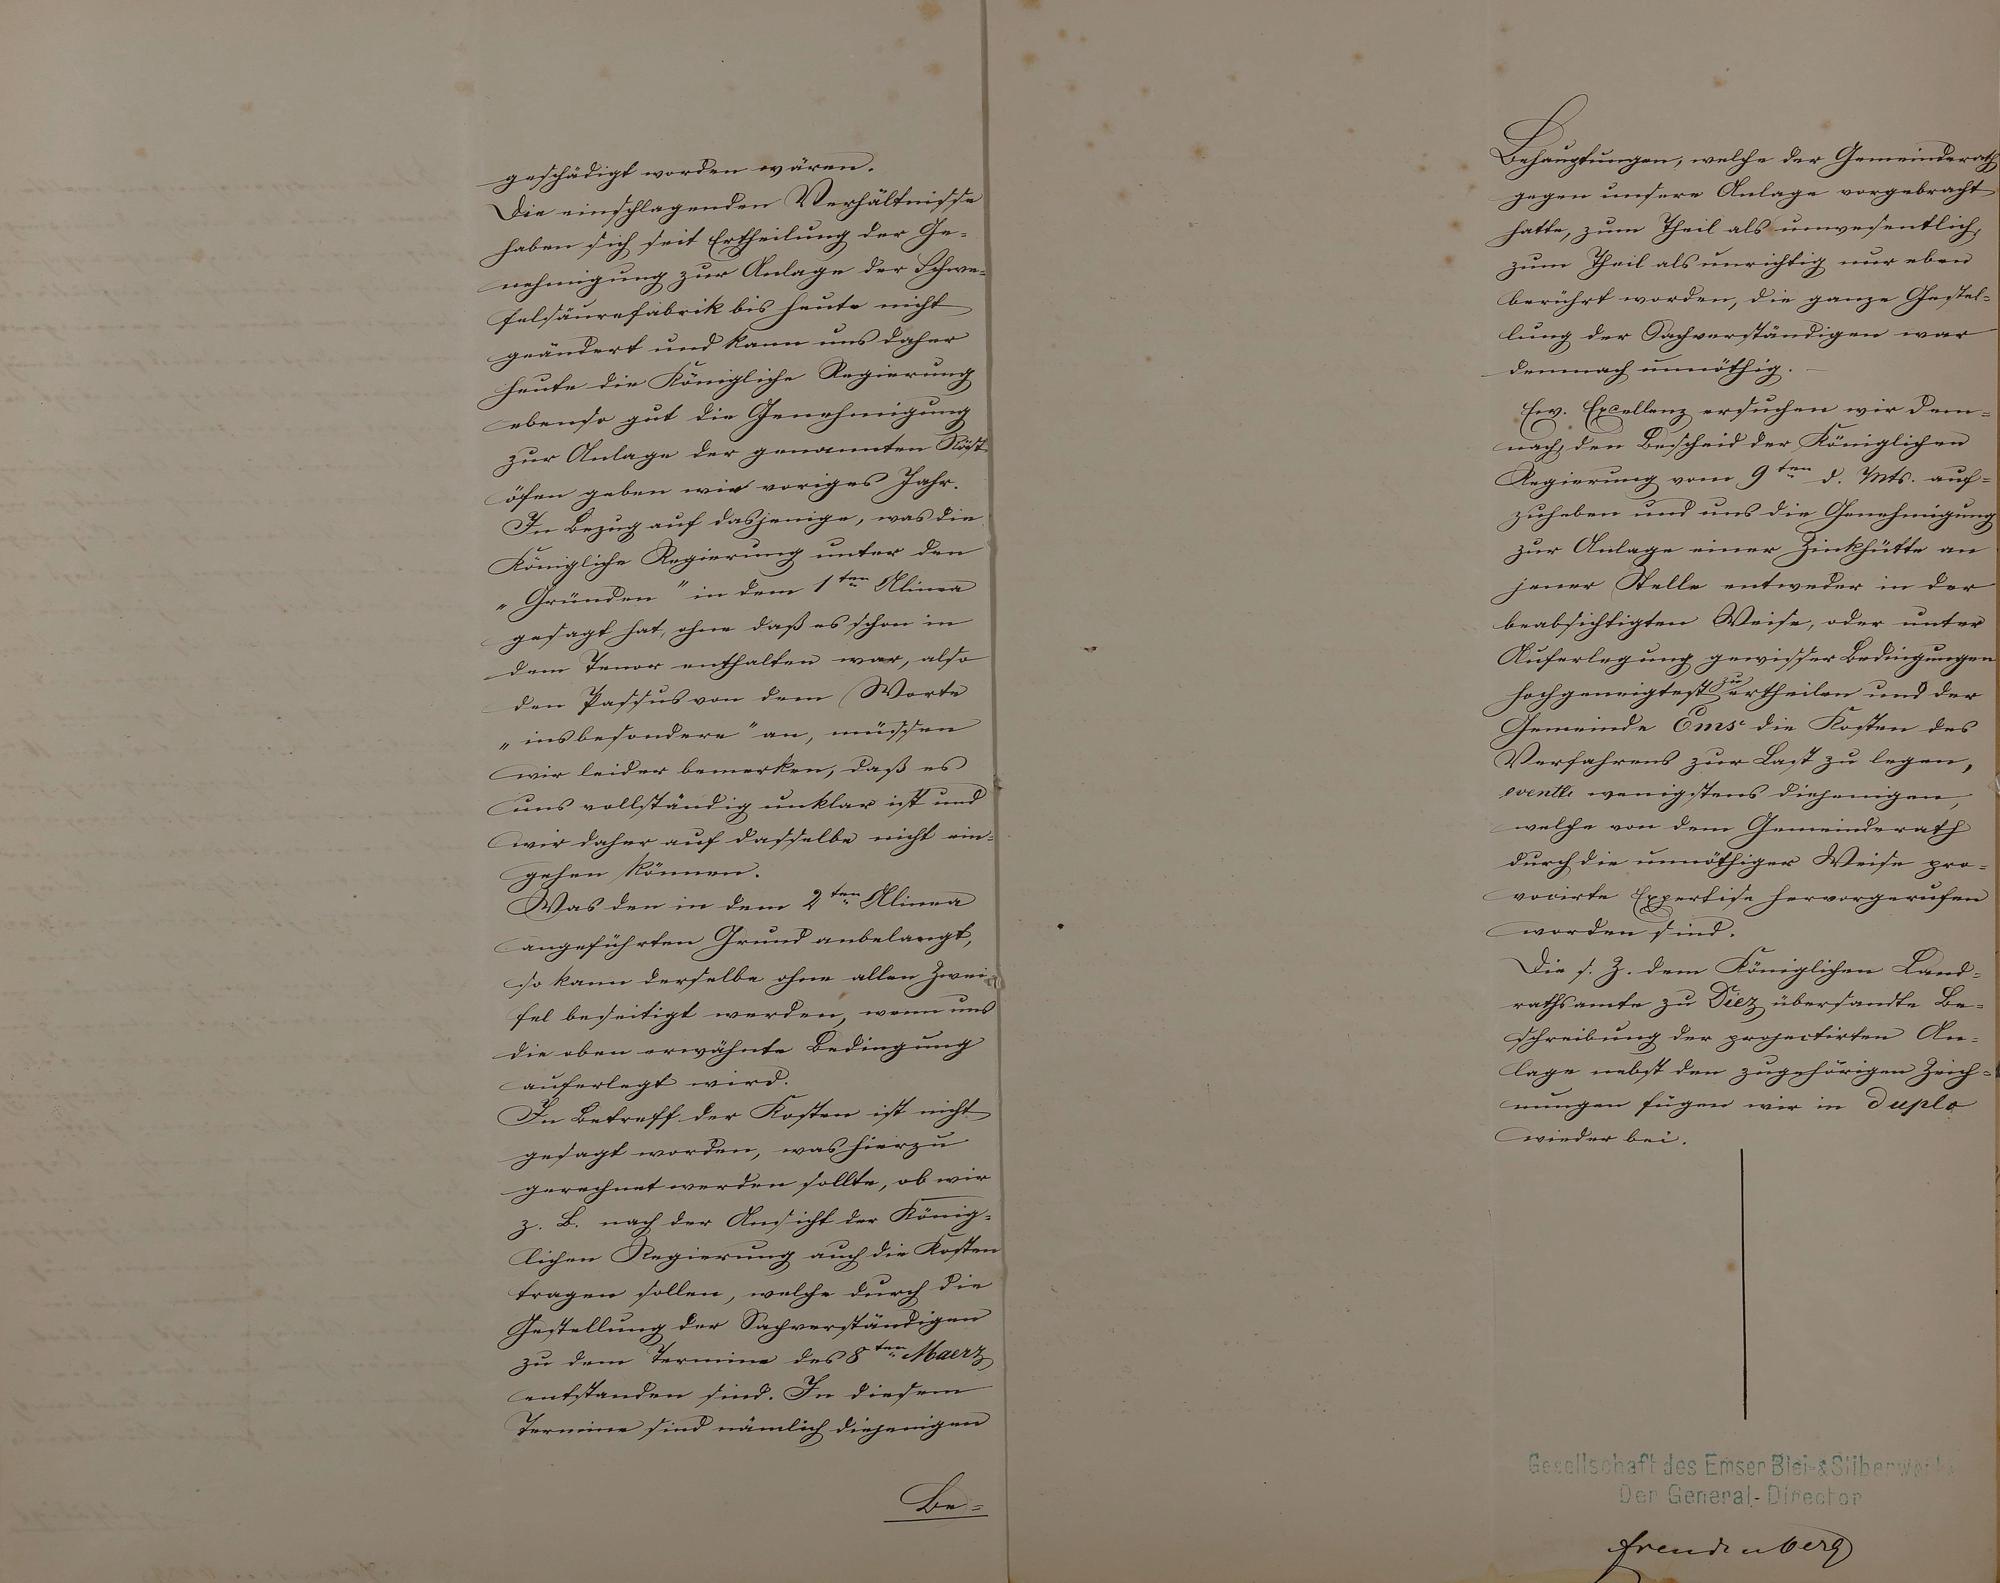 geschädigt worden wären.
Die einschlagenden Verhältnisse
haben sich seit Ertheilung der Ge-
nehmigung zur Anlage der Schwe-
felsäurefabrik bis heute nicht
geändert und kann uns daher
heute die Königliche Regierung
ebenso gut die Genehmigung
zur Anlage der genannten Röst-
öfen geben wie voriges Jahr.
In Bezug auf dasjenige, was die
Königliche Regierung unter den
„Gründen" in dem 1ten Alinea
gesagt hat, ohne daß es schon in
dem Tenor enthalten war, also
den Passus von dem Worte
„insbesondere" an, müssen
wir leider bemerken, daß es
uns vollständig unklar ist und
wir daher auf dasselbe nicht ein-
gehen können.
Was den in dem 2ten Alinea
angeführten Grund anbelangt,
so kann derselbe ohne allen Zwei-
fel beseitigt werden, wenn uns
die oben erwähnte Bedingung
auferlegt wird.
In Betreff der Kosten ist nicht
gesagt worden, was hierzu
gerechnet werden sollte, ob wir
z. B. nach der Ansicht der König-
lichen Regierung auch die Kosten
tragen sollen, welche durch die
Gestellung der Sachverständigen
zu dem Termine des 8ten Maerz
entstanden sind. In diesem
Termine sind nämlich diejenigen
Be-
Behauptungen, welche der Gemeinderath
gegen unsere Anlage vorgebracht
hatte, zum Theil als unwesentlich,
zum Theil als unrichtig nur eben
berührt worden, die ganze Gestel-
lung der Sachverständigen war
demnach unnöthig. —
Ew. Excellenz ersuchen wir dem-
nach, den Bescheid der Königlichen
Regierung vom 9ten d. Mts. auf-
zuheben und uns die Genehmigung
zur Anlage einer Zinkhütte an
jener Stelle entweder in der
beabsichtigten Weise, oder unter
Auferlegung gewisser Bedingungen
hochgeneigtest zu ertheilen und der
Gemeinde Ems die Kosten des
Verfahrens zur Last zu legen,
eventl. wenigstens diejenigen,
welche von dem Gemeinderath
durch die unnöthiger Weise pro-
vocirte Expertise hervorgerufen
worden sind.
Die s. Z. dem Königlichen Land-
rathsamte zu Diez übersandte Be-
schreibung der projectirten An-
lage nebst den zugehörigen Zeich-
nungen fügen wir in duplo
wieder bei.
Gesellschaft des Emser Blei-&Silberwerks
Der General-Director
Freudenberg